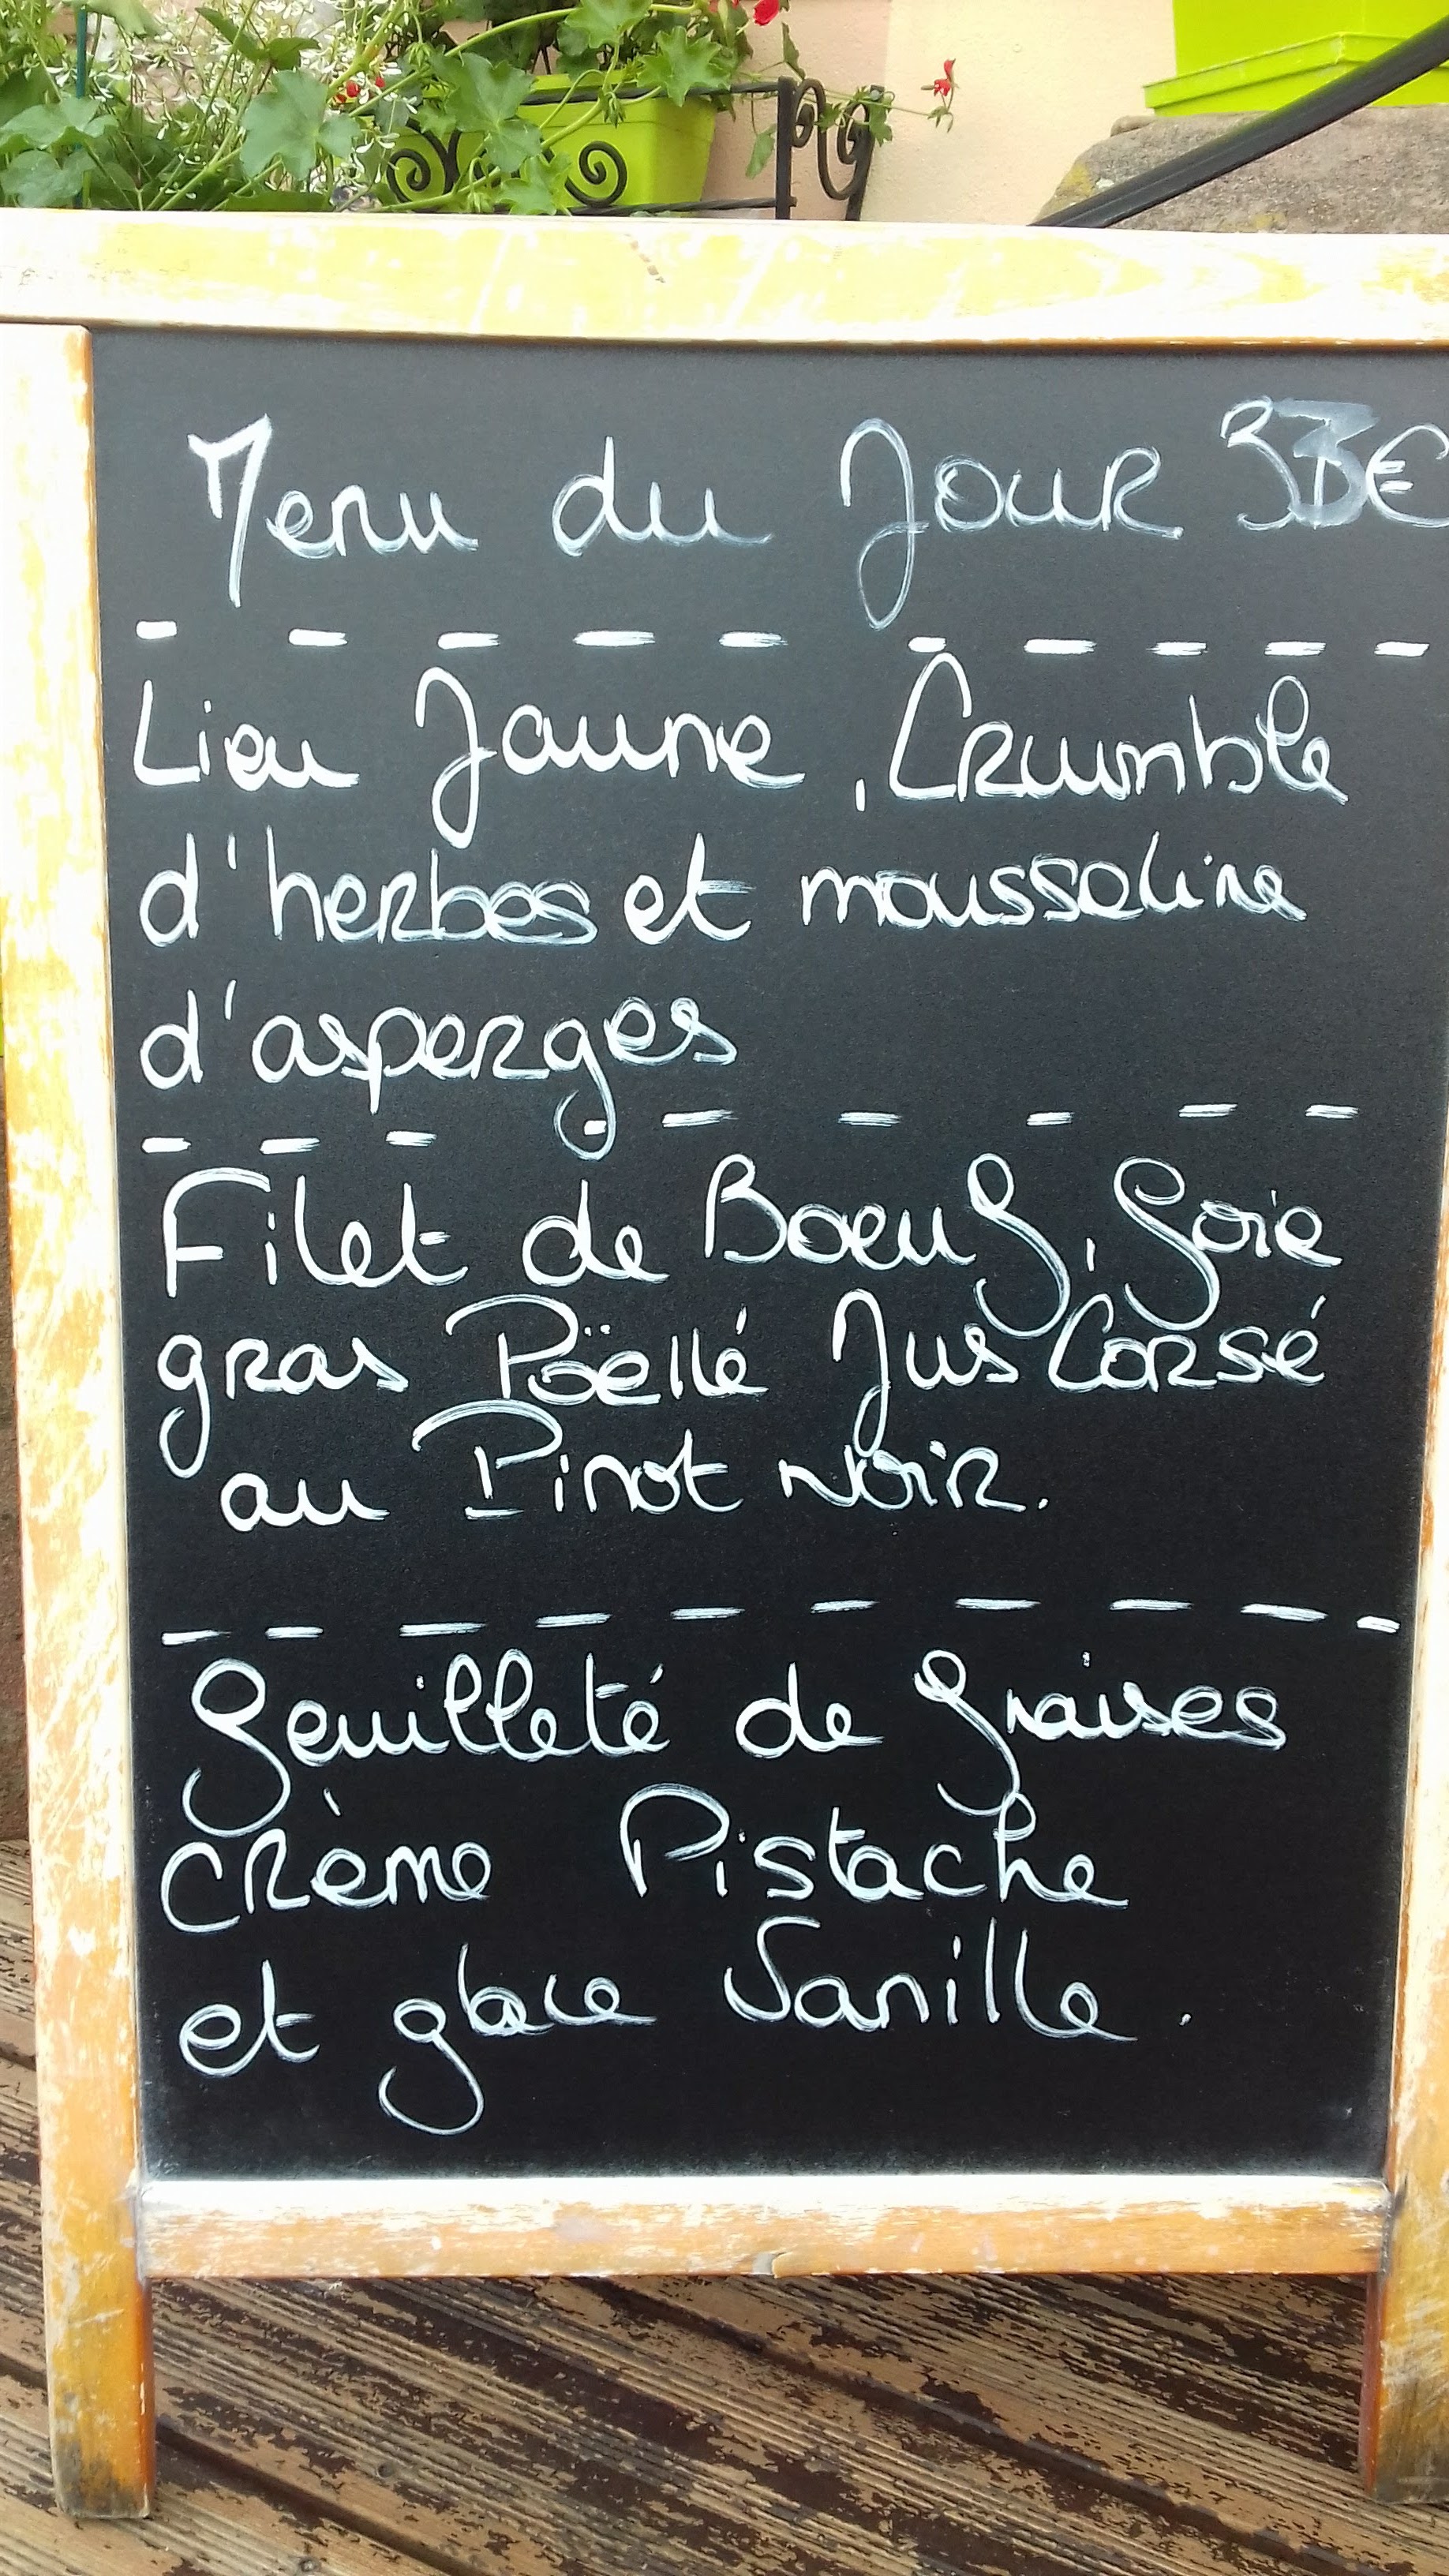 Menu du Jour
Lieu Jaune, Crumble
d'herbes et mousseline
d'asperges
Filet de Boeuf, foie
gras Poëllé Jus Corsé
au Pinot Noir.
feuilleté de fraises
crème Pistache
et glace Vanille.